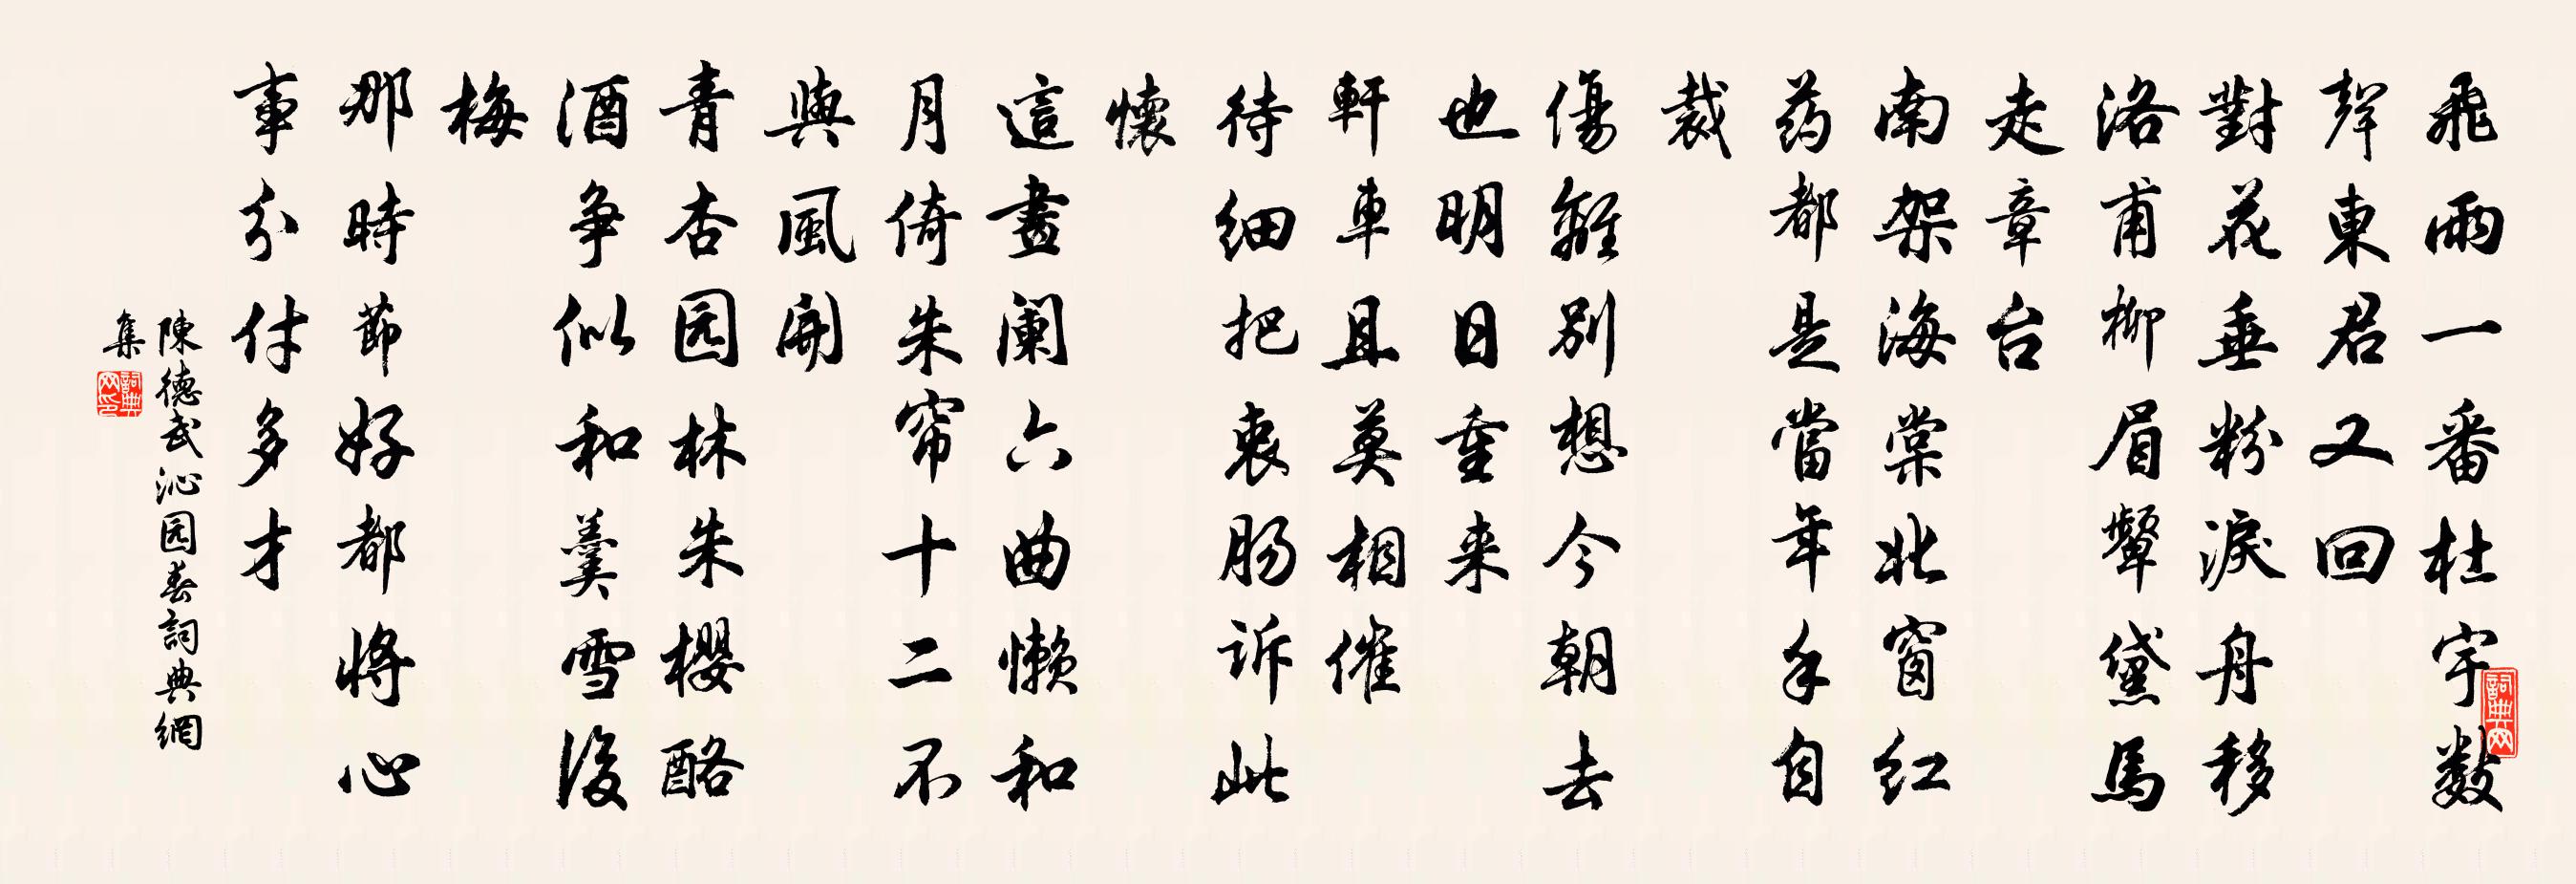 飛雨一番杜宇数
聲東君又回
對花垂粉淚舟移
洛甫柳眉顰黛馬
走章台
南架海棠北窗红
药都是當年手自
裁
傷離別想今朝去
也明日重来
軒車且莫相催
待细把衷肠诉此
懷
這畫阑六曲懒和
月倚朱帘十二不
與風開
青杏园林朱櫻酪
酒争似和羹雪後
梅
那時節好都將心
事分付多才
陳德武沁园春詞典網
集
詞典网
詞典网印